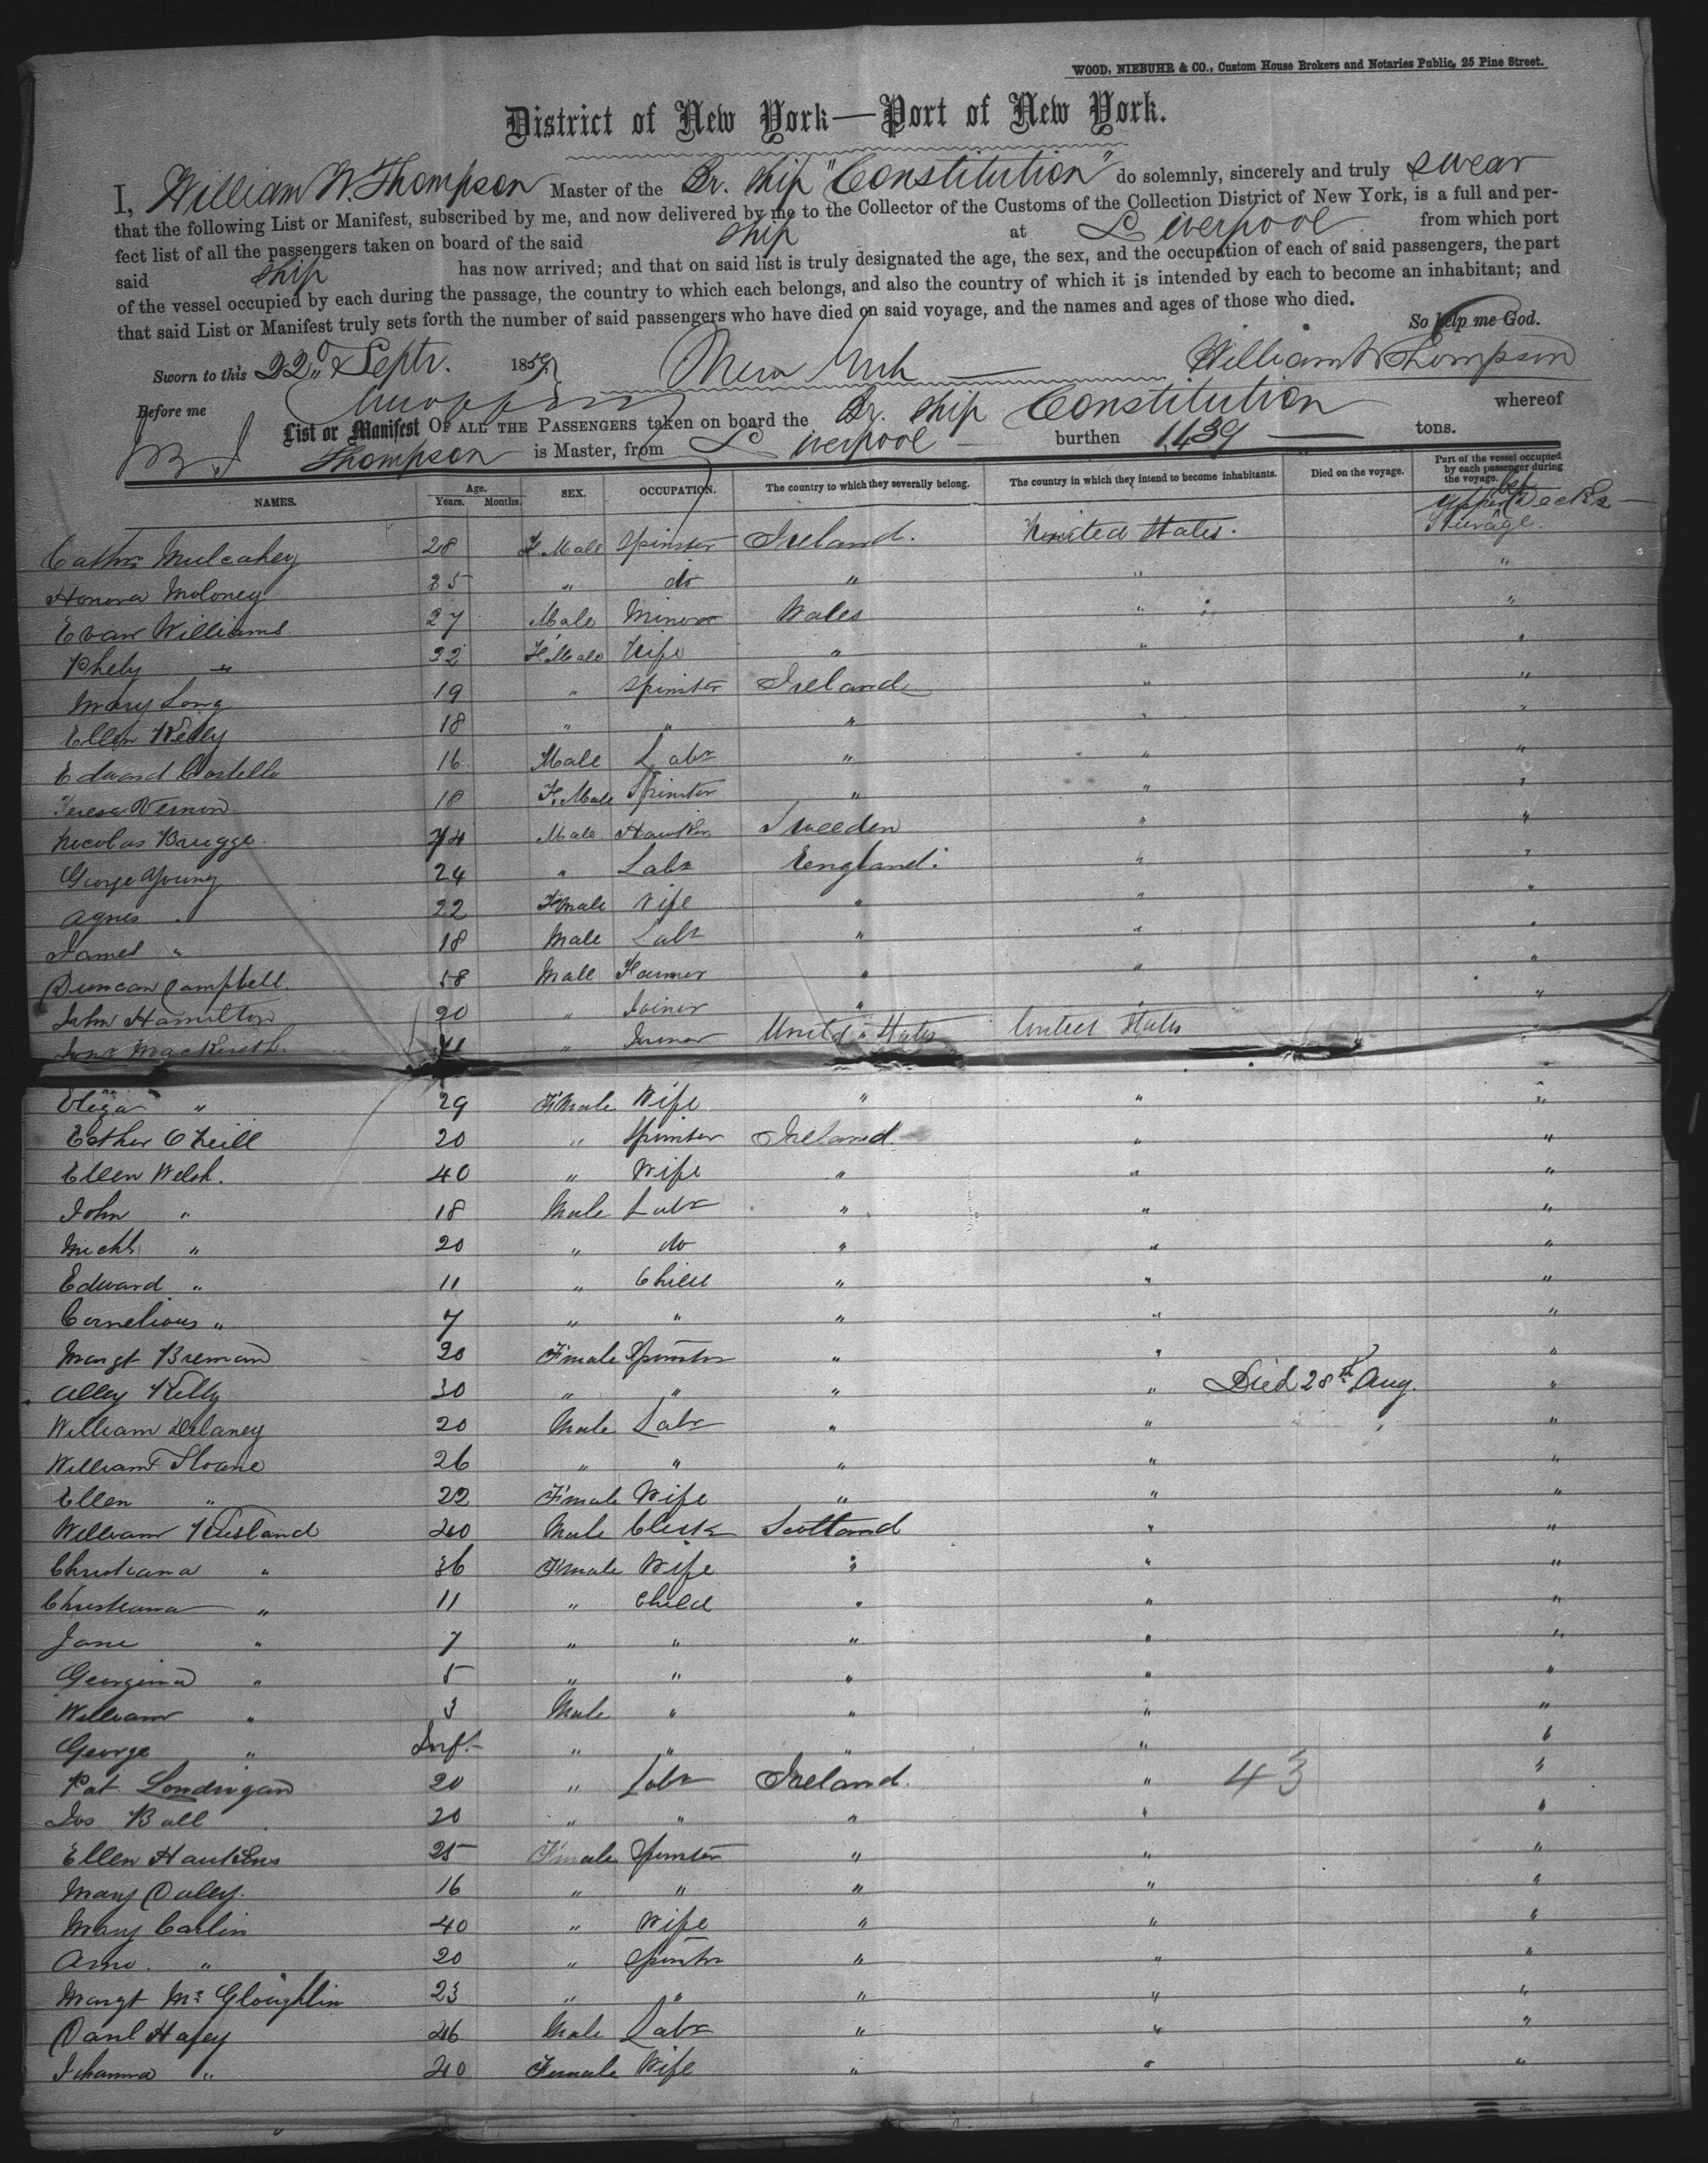 WOOD, NIEBUHR & CO., Custom House Brokers and Notaries Public, 25 Pine Street.
District of New York—Port of New York.
I, William W. Thompson Master of the Br. Ship "Constitution" do solemnly, sincerely and truly swear
that the following List or Manifest, subscribed by me, and now delivered by me to the Collector of the Customs of the Collection District of New York, is a full and per-
fect list of all the passengers taken on board of the said ship at Liverpool from which port
said ship has now arrived; and that on said list is truly designated the age, the sex, and the occupation of each of said passengers, the part
of the vessel occupied by each during the passage, the country to which each belongs, and also the country of which it is intended by each to become an inhabitant; and
that said List or Manifest truly sets forth the number of said passengers who have died on said voyage, and the names and ages of those who died.
So help me God.
Sworn to this 22d Septr. 1859 New York — William W Thompson
Before me
List or Manifest OF ALL THE PASSENGERS taken on board the Br. Ship Constitution whereof
Thompson is Master, from Liverpool burthen 1439 tons.
NAMES. Age. Years. Months. SEX. OCCUPATION. The country to which they severally belong. The country in which they intend to become inhabitants. Died on the voyage. Part of the vessel occupied by each passenger during the voyage.
Upper Decks
Cathn Mulcahey 28 F. Male Spinster Ireland. United States. Steerage.
Honora Moloney 25 " do " " "
Evan Williams 27 Male Miner Wales " "
Phely " 22 F. Male Wife " " "
Mary Long 19 " Spinster Ireland " "
Ellen Kelly 18 " " " " "
Edward Costello 16 Male Labr " " "
Teresa Vernon 18 F. Male Spinster " " "
Nicolas Brugge. 44 Male Hawker Sweeden " "
George Young 24 " Labr England. " "
Agnes " 22 Fmale Wife " " "
James " 18 Male Labr " " "
Duncan Campbell. 58 Male Farmer " " "
John Hamilton 20 " Joiner " " "
Mackereth. " United States United States
Eliza " 29 F'Male Wife " " "
Esther O'Neill 20 " Spinster Ireland " "
Ellen Welsh. 40 " Wife " " "
John " 18 Male Labr " " "
Michl " 20 " do " " "
Edward " 11 " Child " " "
Cornelious " 7 " " " " "
Margt Brenan 20 F'male Spinster " " "
Alley Kelly 30 " " " " Died 28th Aug. "
William Delaney 20 Male Labr " " "
William Sloane 26 " " " " "
Ellen " 22 F'male Wife " " "
William 40 Male Clerk Scotland " "
Christiana " 36 F'male Wife " " "
Christiana " 11 " Child " " "
Jane " 7 " " " " "
Georgina " 5 " " " " "
William " 3 Male " " " "
George " Inft " " " " "
Pat Londrigan 20 " Labr Ireland. " 43 "
Jos Ball 20 " " " " "
Ellen Hawkins 25 F'male Spinster " " "
Mary Daley. 16 " " " " "
Mary Carlin 40 " Wife " " "
Ann. " 20 " Spinster " " "
Margt McGloughlin 23 " " " " "
Danl Hafey 46 Male Labr " " "
Johanna " 40 Female Wife " " "